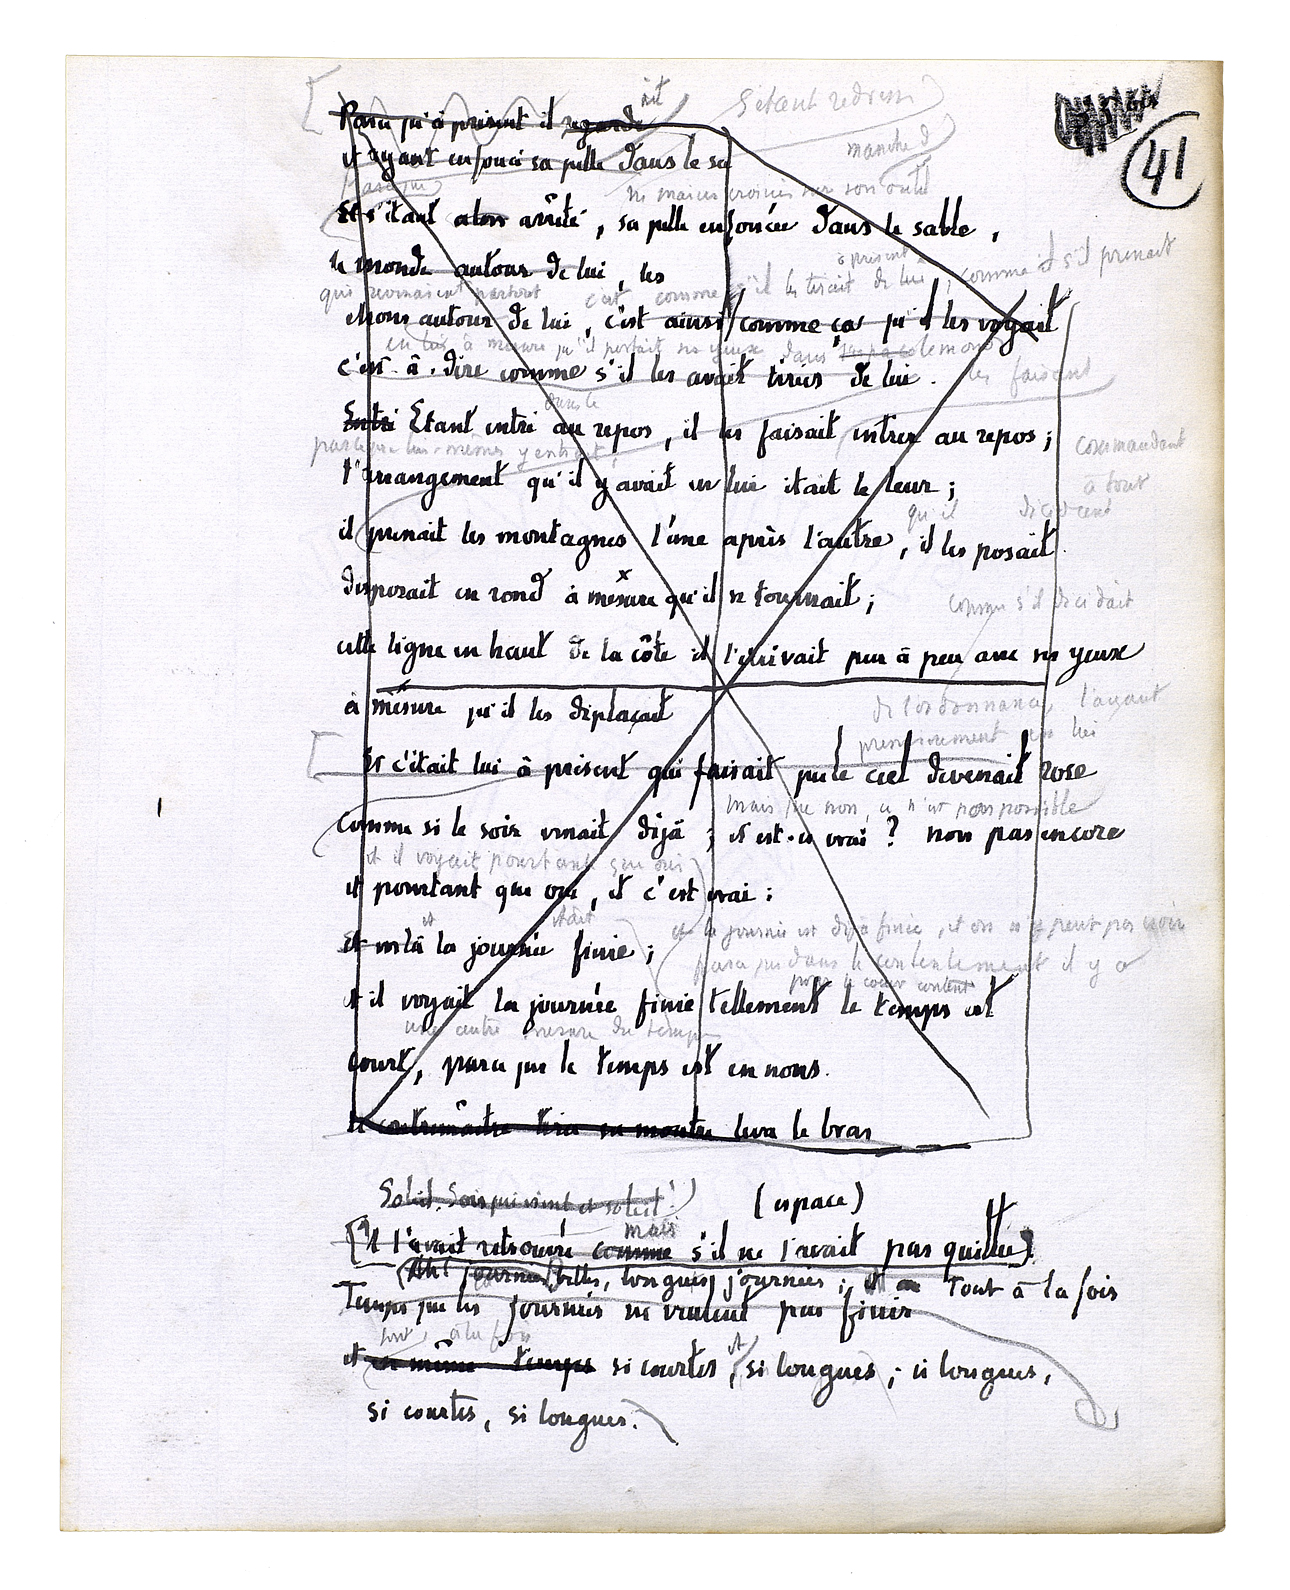 41
ait
S'étant redressé
Parce qu'à présent il regarde
manche d
et ayant enfoui sa pelle dans le sa
parce que
les mains croisées sur son outil
Et s'étant alors arrêté, sa pelle enfoncée dans le sable,
à présent
le monde autour de lui, les
s'il les tirait de lui, comme s'il prenait
qui venaient partout
c'est comme
choses autour de lui, c'est ainsi comme ça qu'il les voyait
en lui à mesure qu'il portait ses yeux dans le monde
c'est-à-dire comme s'il les avait tirées de lui.
les faisant
dans le
Entré Etant entré au repos, il les faisait entrer au repos;
commandant
parce que lui-même y entrait;
à tout
l'arrangement qu'il y avait en lui était le leur;
qu'il
il prenait les montagnes l'une après l'autre, il les posait
disposait en rond à mesure qu'il se tournait;
comme s'il décidait
cette ligne en haut de la côte il l'écrivait peu à peu avec ses yeux
à mesure qu'il les déplaçait
de l'ordonnance, l'ayant
premièrement en lui
Et c'était lui à présent qui faisait que le ciel devenait rose
mais que non, ce n'est pas possible
comme si le soir venait déjà; et est-ce vrai? non pas encore
et il voyait pourtant que oui
et pourtant que oui, et c'est vrai:
et
était
et la journée est déjà finie, et on n'y peut pas croire
Et voilà la journée finie;
parce que dans le contentement il y a
pour le coeur content
et il voyait la journée finie tellement le temps est
une autre mesure du temps
court, parce que le temps est en nous.
Le contremaître tira sa montre leva le bras
Soleil. Soir qui vient et soleil!
(espace)
mais
(Il l'avait retrouvée comme s'il ne l'avait pas quittée)
(Ah! journées belles, longues journées; et Tout à la fois
Temps que les journées ne veulent pas finir
sont à la fois
et
et en même temps si courtes, si longues; si longues,
si courtes, si longues.